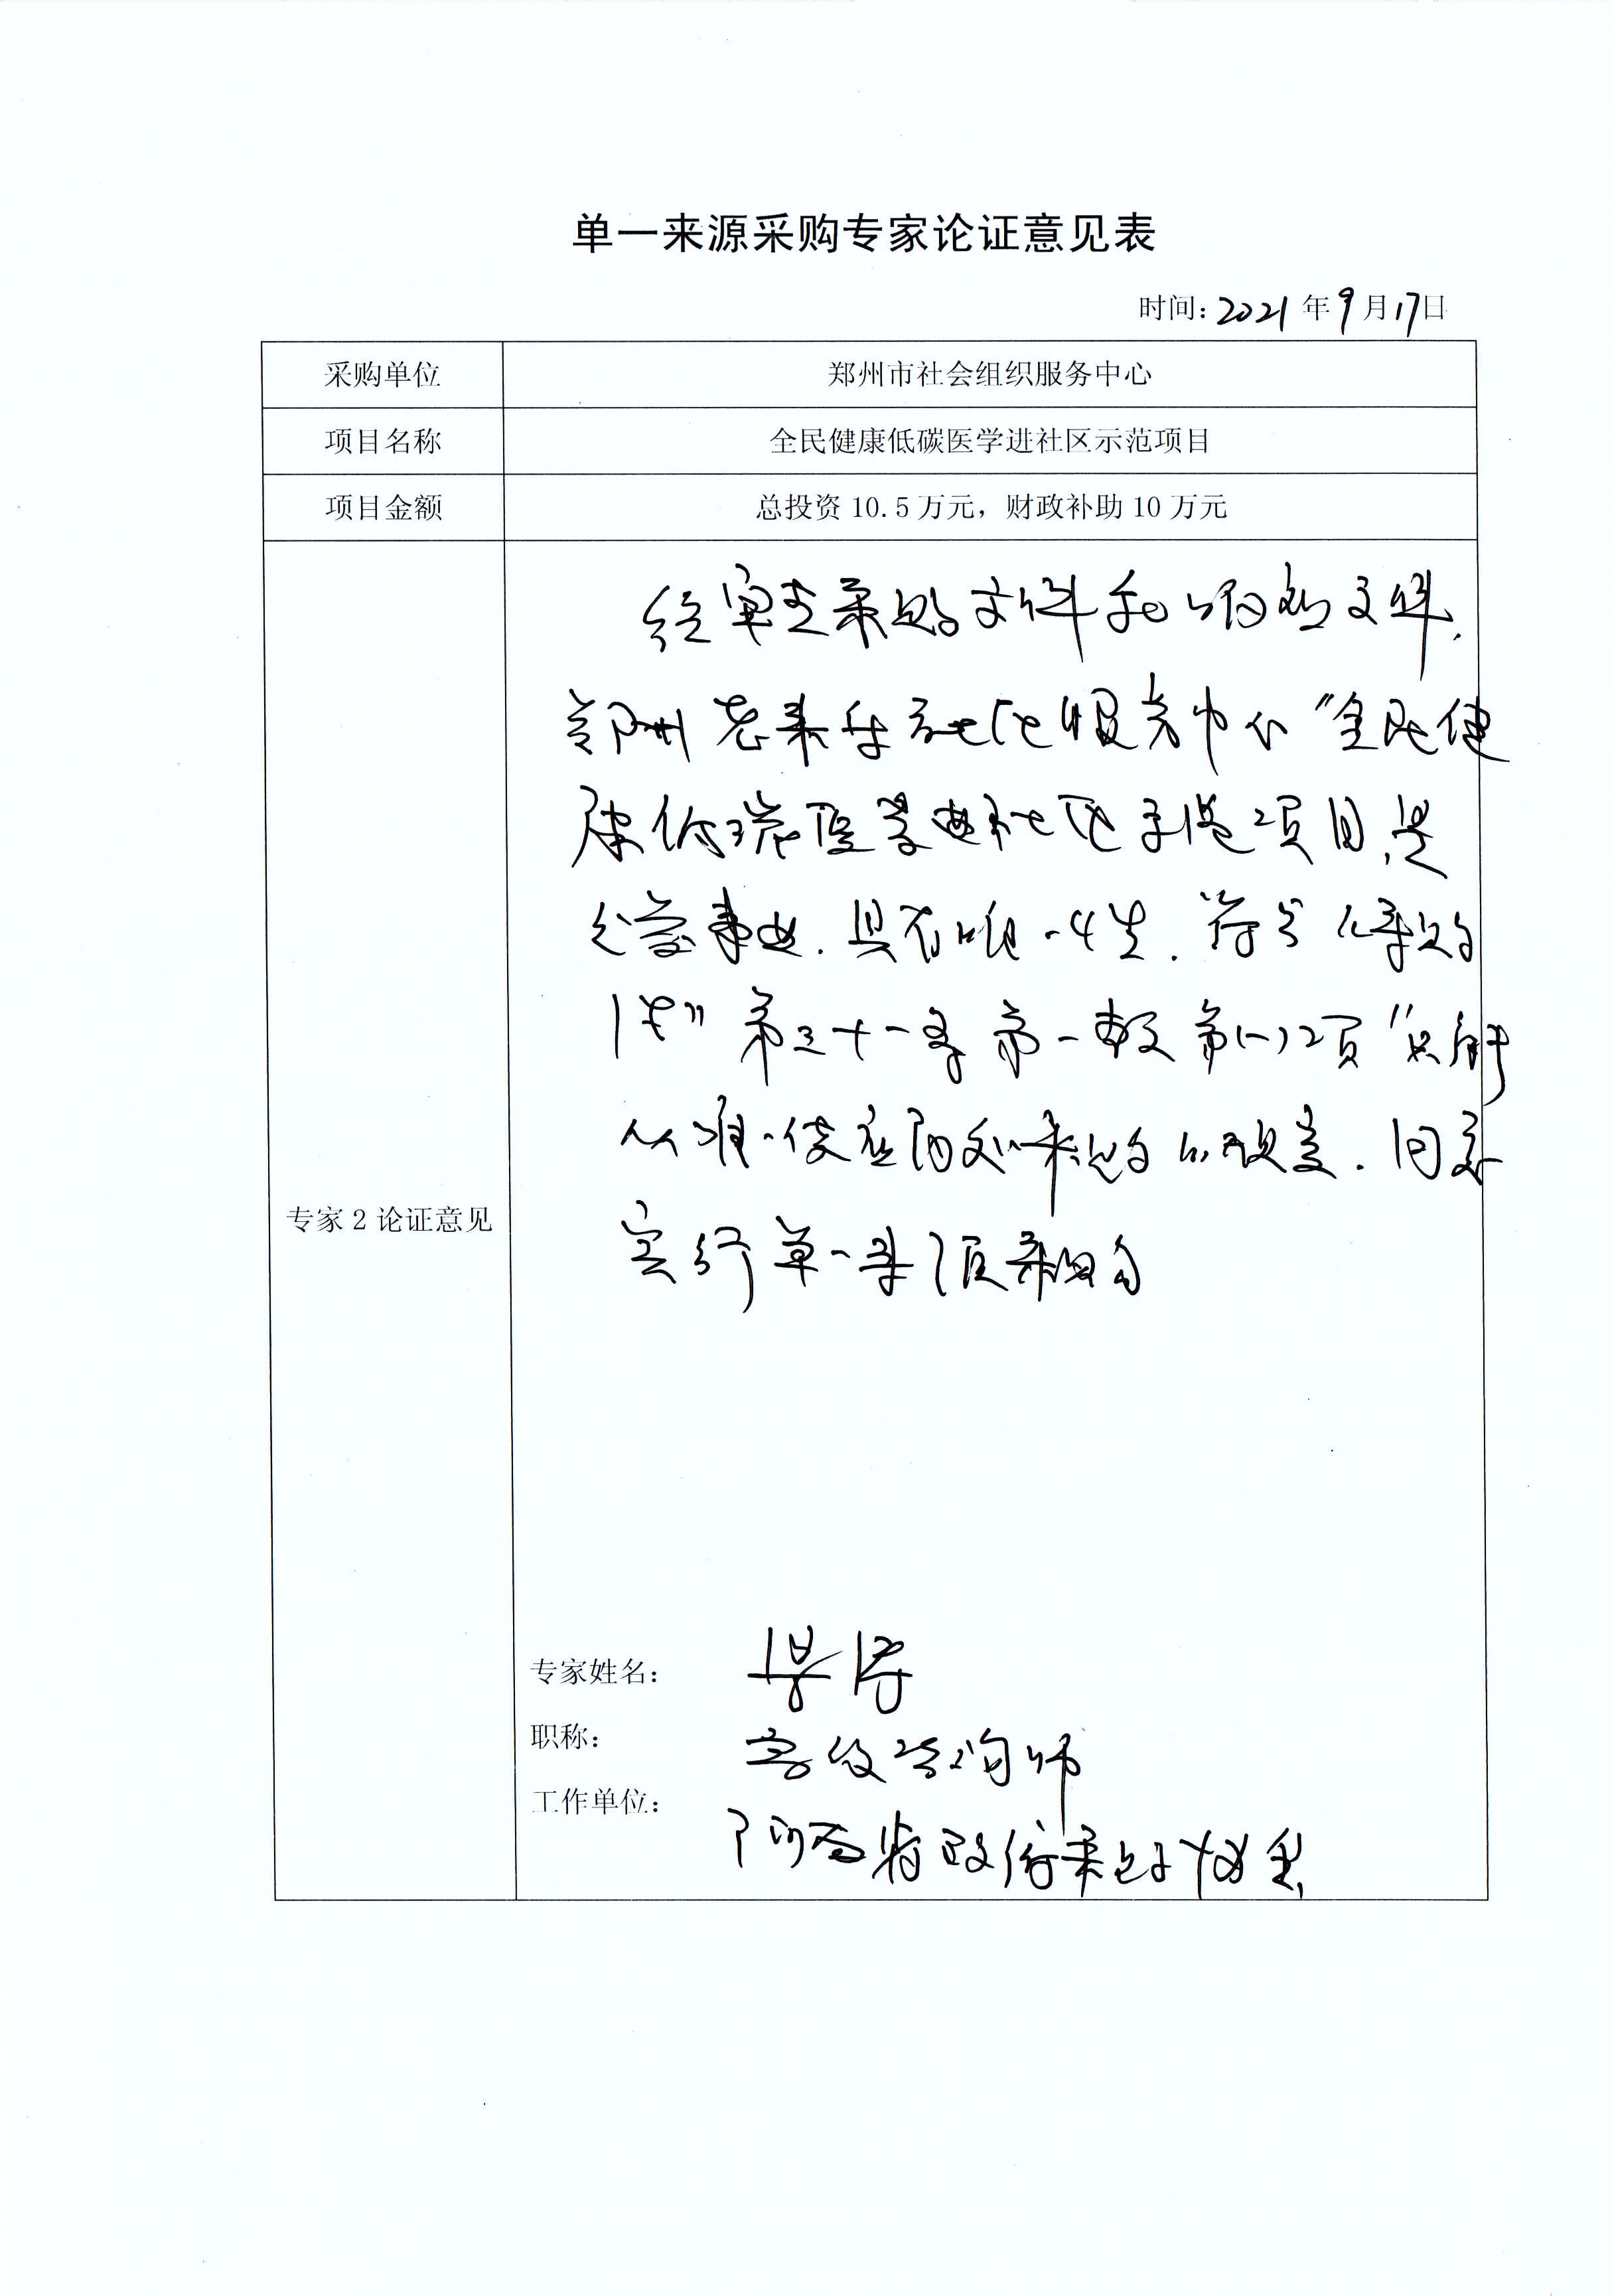 单一来源采购专家论证意见表
时间：2021年9月17日
采购单位 郑州市社会组织服务中心
项目名称 全民健康低碳医学进社区示范项目
项目金额 总投资10.5万元，财政补助10万元
专家2论证意见
经审查采购文件和相关文件，
郑州老来乐社区服务中心“全民健
康低碳医学进社区示范项目，是
公益事业．具有唯一性．符合《采购
法》第三十一条第一款第(一)项“只能
从唯一供应商处采购的规定．同意
实行单一来源采购
专家姓名：
职称： 高级咨询师
工作单位： 河南省政府采购协会